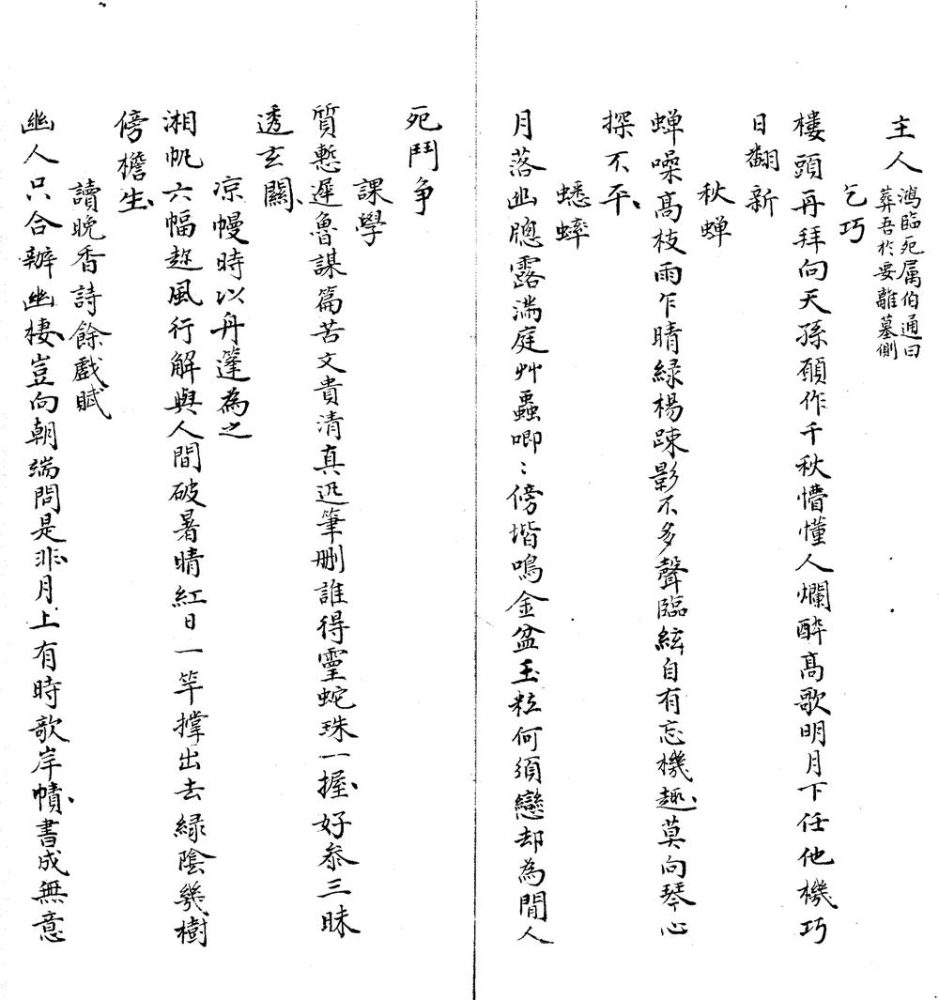 主人鴻臨死属伯通曰
葬吾於要離墓側
乞巧
樓頭再拜向天孫願作千秋懵懂人爛醉高歌明月下任他機巧
日翻新
秋蝉
蝉噪高枝雨乍晴緑楊踈影不多聲臨絃自有忘機趣莫向琴心
探不平
蟋蟀
月落幽牕露滿庭艸蟲唧〻傍堦鳴金盆玉粒何須戀却為閒人
死鬥争
課學
質慙遲魯謀篇苦文貴清真迅筆删誰得靈蛇珠一握好叅三昧
透玄關
凉幔時以舟篷為之
湘帆六幅趂風行解與人間破暑晴紅日一竿撑出去緑陰幾樹
傍檐生
讀晚香詩餘戲賦
幽人只合辦幽棲豈向朝端問是非月上有時歌岸幘書成無意